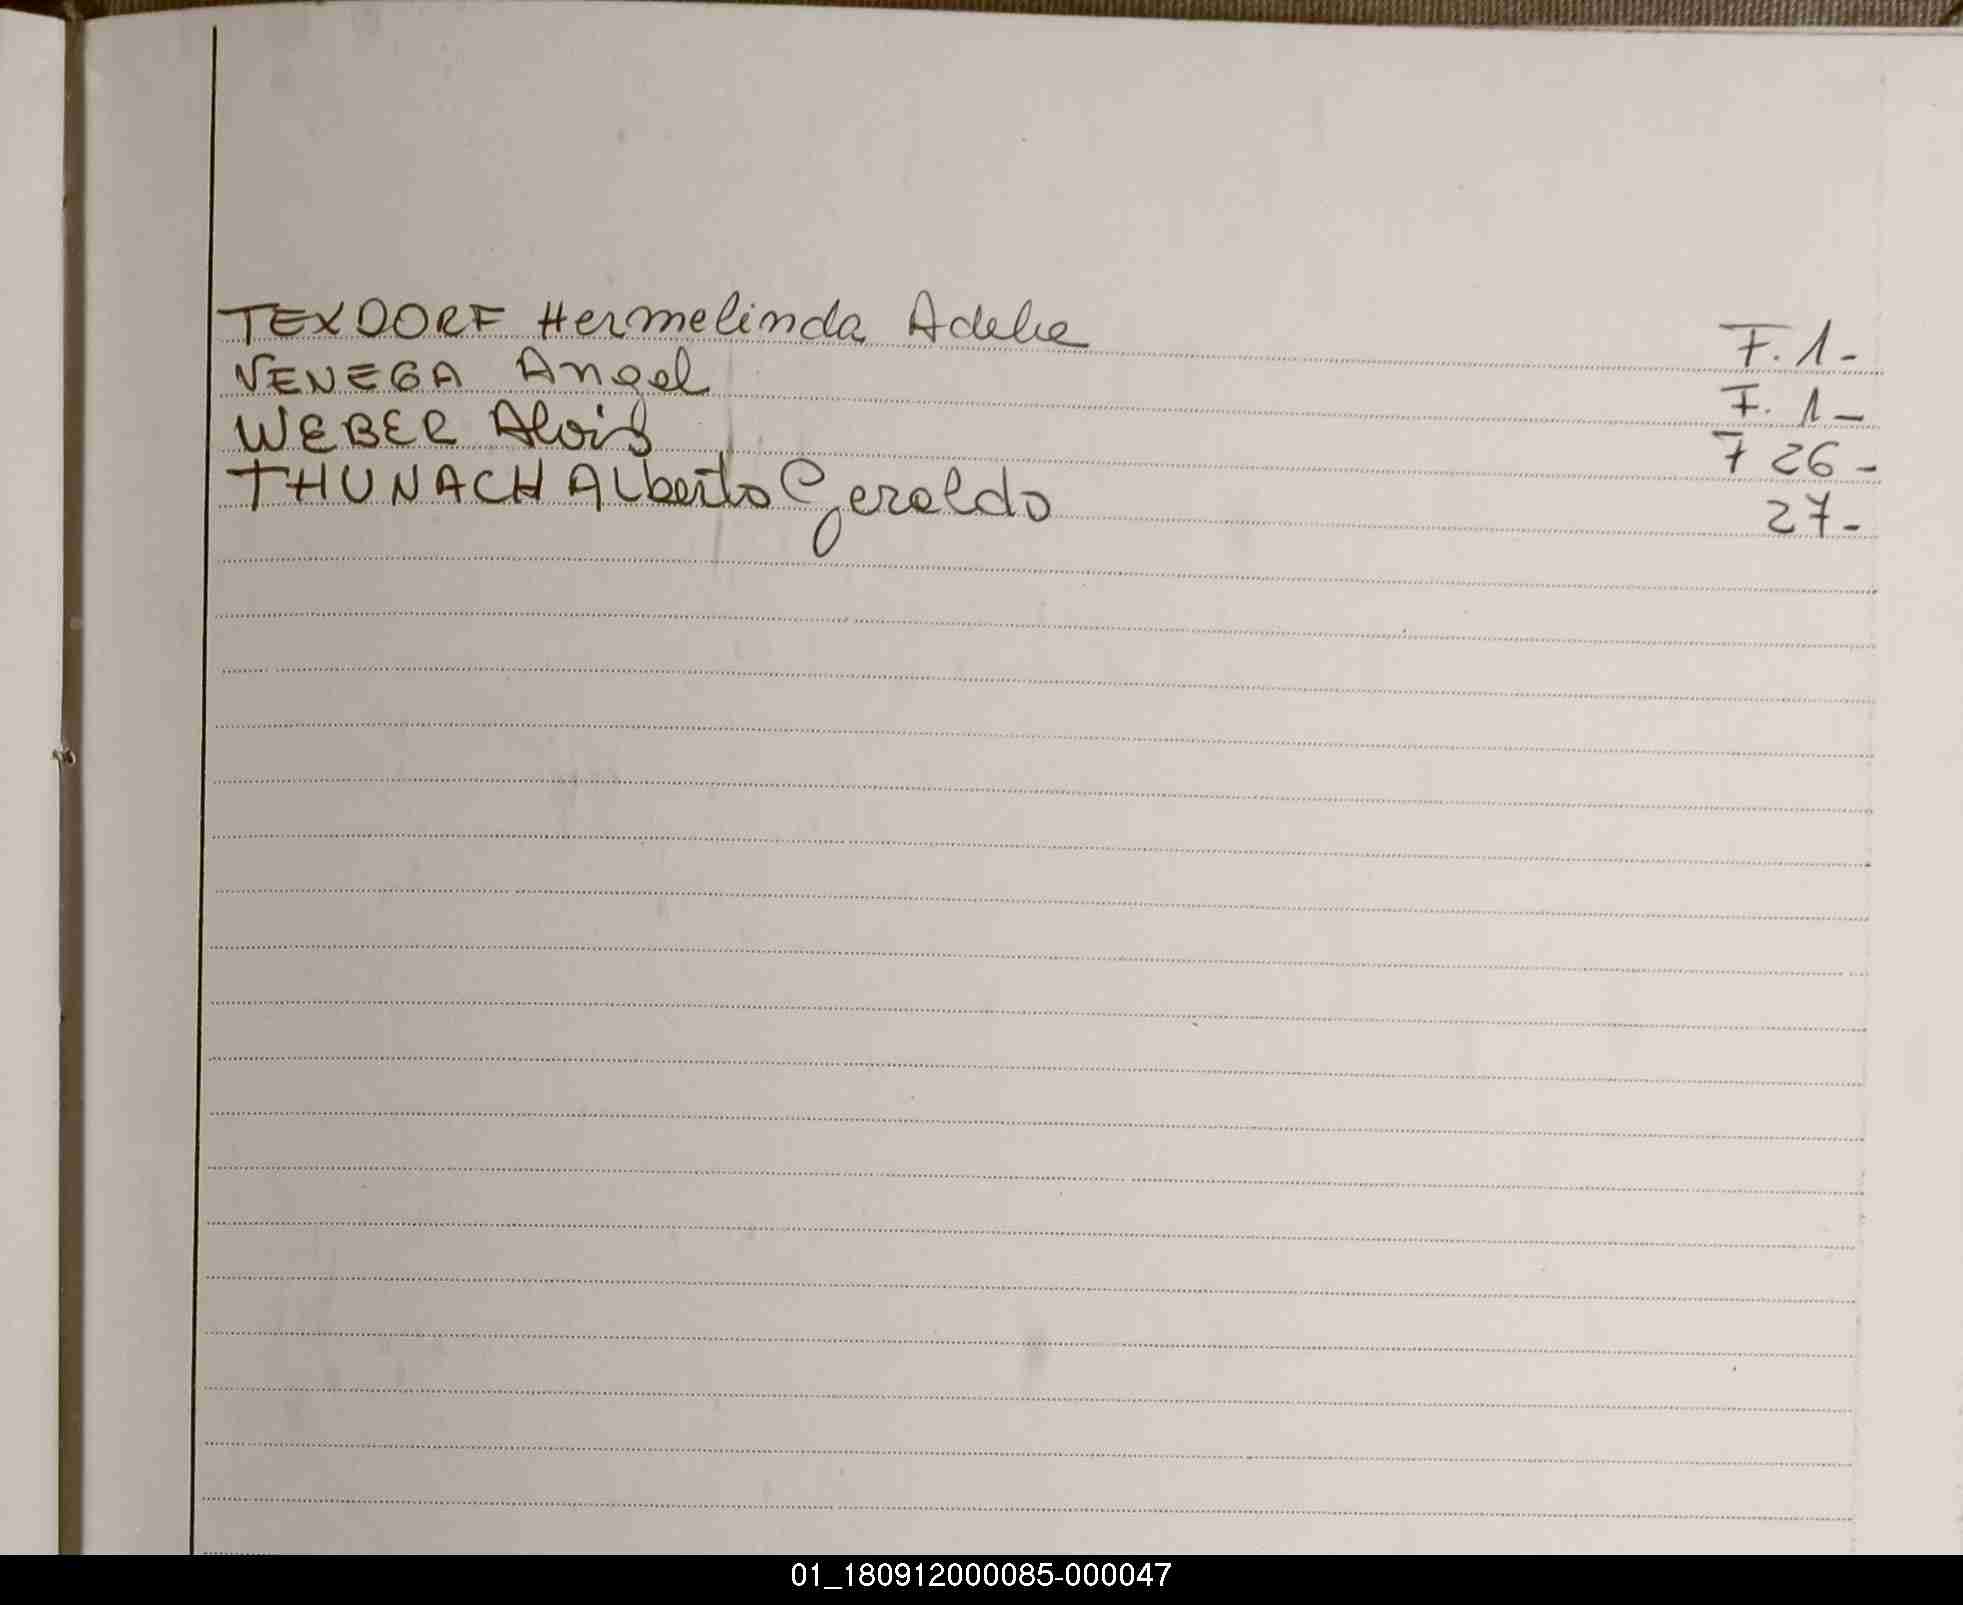 TEXDORF Hermelinda Adelie F.1-
VENEGA Angel F. 1-
WEBER Alois F 26-
THUNACH Alberto Geraldo 27-
01_180912000085-000047